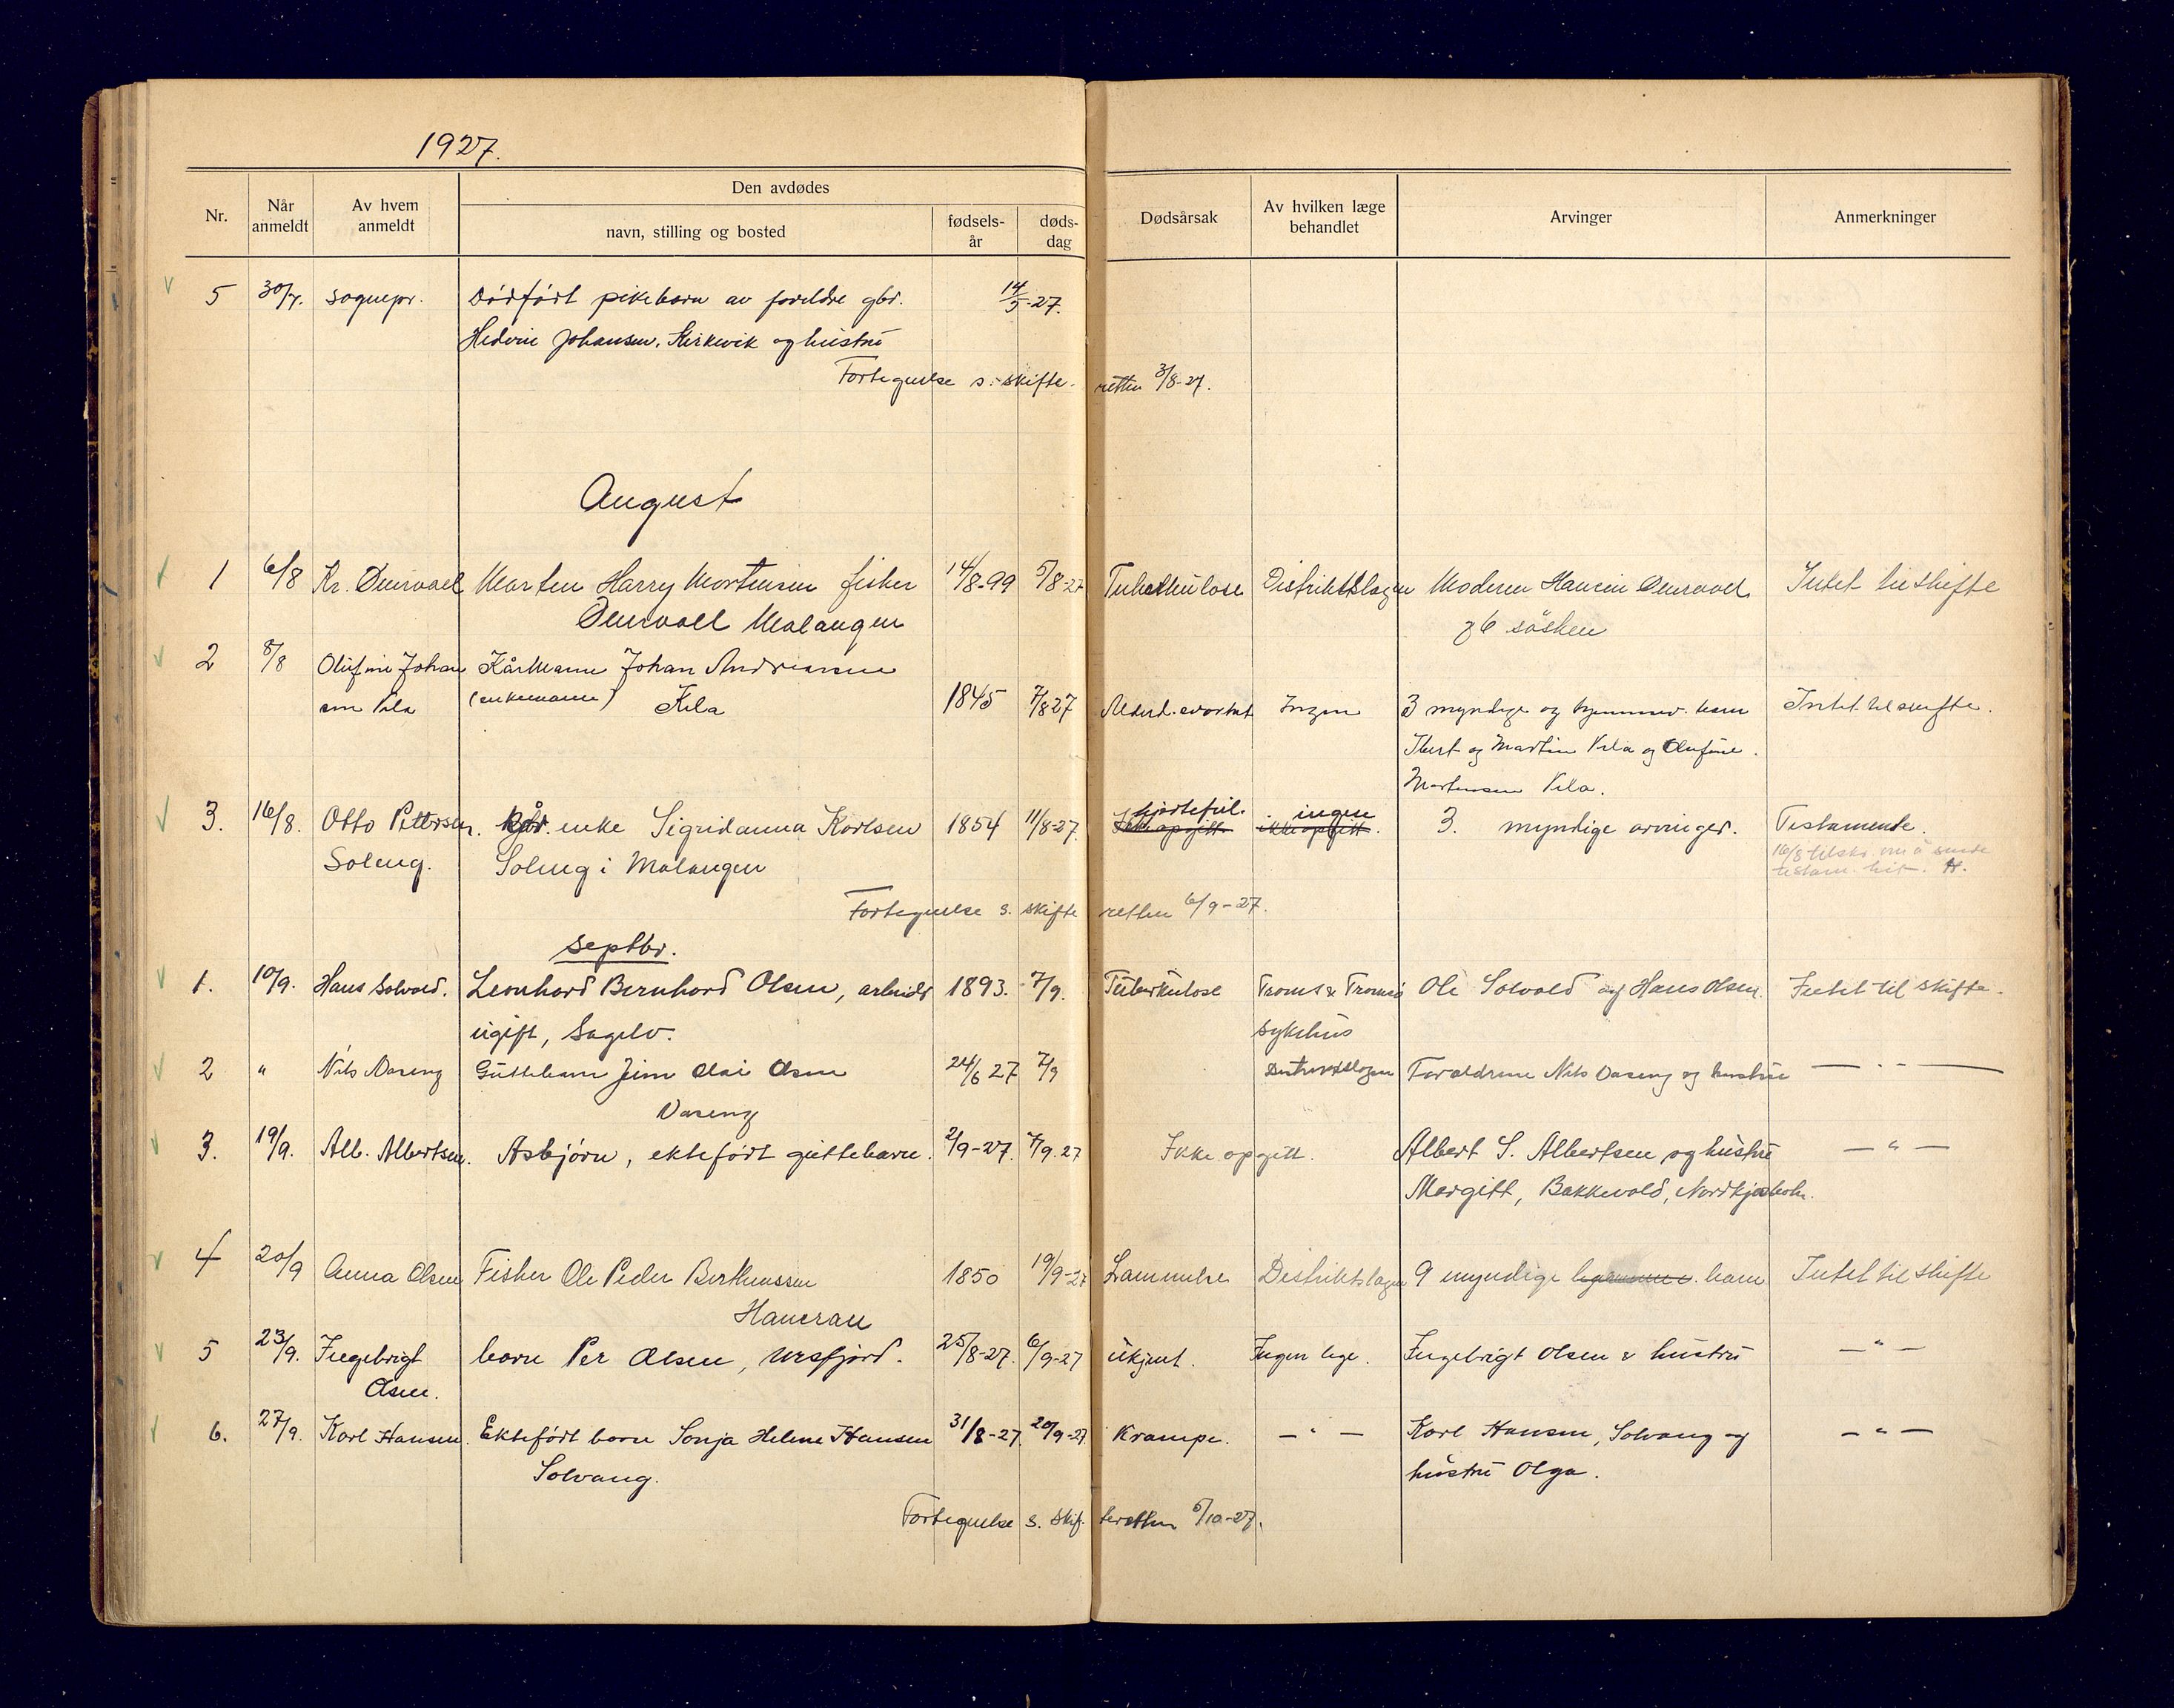 1927.
Nr.
Når anmeldt
Av hvem anmeldt
Den avdødes
navn, stilling og bosted
fødsels-år
døds-dag
Dødsårsak
Av hvilken læge behandlet
Arvinger
Anmerkninger
5 30/7. sognepr. Dødfødt pikebarn av foreldre gbr. 14/5-27.
Johansen, Kirkevik og hustru
Fortegnelse s. skifteretten 3/8-27.
August
1 6/8 Kr. Marten Harry Mortensen fisker 14/8-99 5/8-27 Tuberkulose Distriktslægen Moderen Intet til skifte
Malangen og 6 søsken
2 8/8 Olufine Johan Kårmann Johan Andreassen
(enkemann) 1845 7/8 27 Ingen 3 myndige og barn Intet til skifte.
og Martin og Olufine
Mortensen
3. 16/8. Otto Pettersen. enke Sigridanna Karlsen 1854 11/8-27. hjertefeil. ikke opgitt. ingen ikke opgitt. 3. myndige arvinger. Testamente.
Soleng. Soleng i Malangen 16/8 tilskr. om å sende
testam. hit. H.
Fortegnelse s. skifteretten 6/9-27.
Septbr.
1. 10/9. Hans Solvold. Leonhard Bernhard Olsen, arbeider 1893. 7/9. Tuberkulose Troms & Tromsø Ole Solvold og Hans Olsen. Intet til skifte.
ugift, Sagelv. sykehus
2 " Nils Guttebarn Jim Olai Olsen 24/6 27 7/9 Distriktslægen Foreldrene Nils og hustru — " —
3. 19/9. Alb. Albertsen. Asbjørn, ektefødt guttebarn. 2/9-27. 7/9.27 Ikke opgitt. Albert S. Albertsen og hustru — " —
Margitt, Bakkevold, Nordkjosbotn.
4 20/9 Anna Olsen Fisker Ole Peder Bertheussen 1850 19/9-27 Lammelse Distriktslægen 9 myndige barn Intet til skifte
5 23/9. Ingebrigt barn Per Olsen, Ursfjord. 25/8-27. 6/9-27 ukjent. Ingen lege. Ingebrigt Olsen & hustru — " —
Olsen.
6. 27/9. Karl Hansen. Ektefødt barn Sonja Helene Hansen 31/8-27. 20/9-27. Krampe. — " — Karl Hansen, Solvang og — " —
Solvang. hustru Olga.
Fortegnelse s. skifteretten 5/10-27.